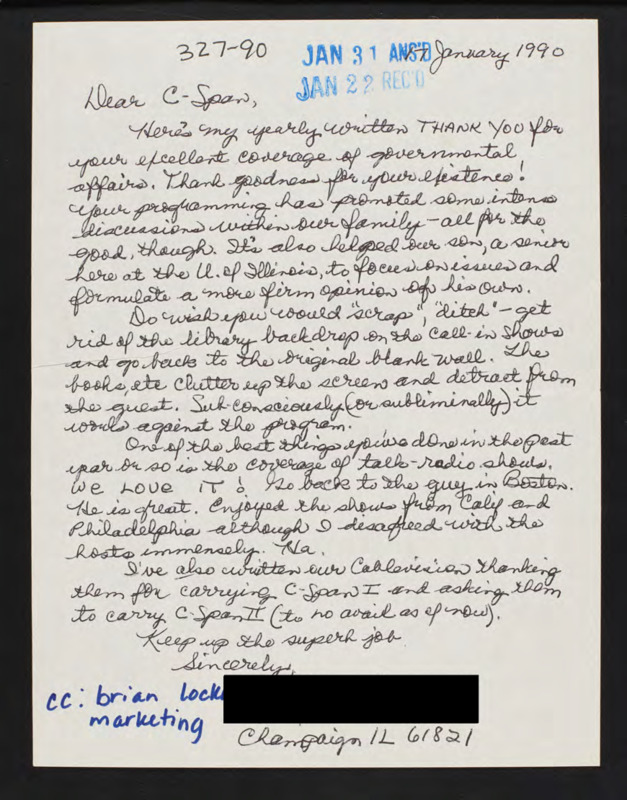 327-90
JAN 31 ANS'D
17 January 1990
JAN 22 REC'D
Dear C-Span,
Here's my yearly written THANK YOU for
your excellent coverage of governmental
affairs. Thank goodness for your existence!
Your programming has promoted some intense
discussions within our family - all for the
good, though. It's also helped our son, a senior
here at the U. of Illinois, to focus on issues and
formulate a more firm opinion of his own.
Do wish you would "scrap", "ditch" - get
rid of the library backdrop on the call-in shows
and go back to the original blank wall. The
books, etc clutter up the screen and detract from
the guest. Sub-consciously (or subliminally) it
works against the program.
One of the best things you've done in the past
year or so is the coverage of talk-radio shows.
WE LOVE IT! Go back to the guy in Boston.
He is great. Enjoyed the shows from Calif and
Philadelphia although I disagreed with the
hosts immensely. Ha.
I've also written our Cablevision thanking
them for carrying C-Span I and asking them
to carry C-Span II (to no avail as of now).
Keep up the superb job.
Sincerely,
cc: brian lock
marketing
Champaign IL 61821